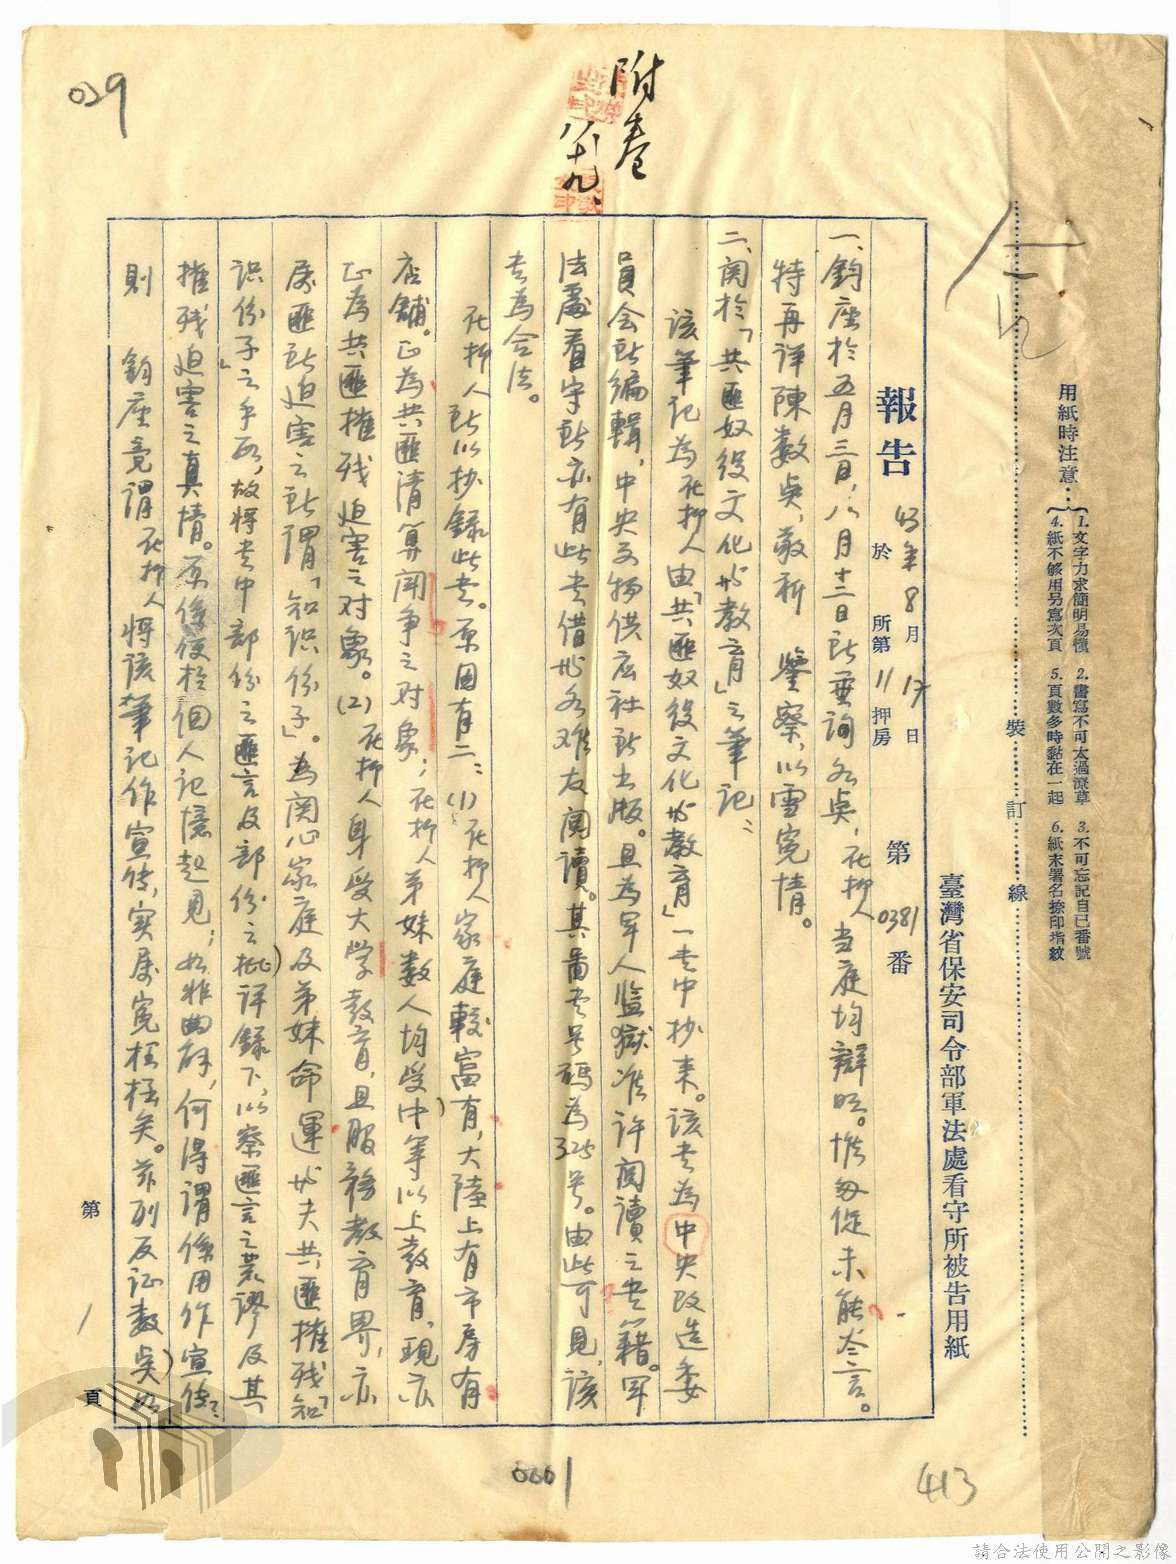 029
附卷
八、十九、
用紙時注意：
1.文字力求簡明易懂 2.書寫不可太過潦草 3.不可忘記自己番號
4.紙不够用另寫次頁 5.頁數多時黏在一起 6.紙末署名捺印指紋
裝訂線
臺灣省保安司令部軍法處看守所被告用紙
報告 43年8月17日 於 所第11押房 第0381番
一、鈞座於五月三日，八月十三日所垂詢各點，在押人當庭均辯明。惟匆促未能盡言。
特再詳陳數點，敬祈 鑒察，以雪冤情。
二、関於「共匪奴役文化與教育」之筆記：
該筆記為在押人由「共匪奴役文化與教育」一書中抄来。該書為中央改造委
員会所編輯，中央文物供应社所出版。且為軍人監獄准許閱讀之書籍。軍
法處看守所亦有此書借與各难友閱讀。其圖書号碼為325号。由此可見，該
書為合法。
在押人所以抄録此書。原因有二：(1)在押人家庭較富有，大陸上有市房有
店舖。正為共匪清算鬪争之対象；在押人弟妹数人均受中等以上教育，現亦
正為共匪摧残迫害之対象。(2)在押人身受大学教育，且服務教育界，亦
屬匪所迫害之所謂「知识份子」。為関心家庭及弟妹命運與夫共匪摧残「知
识份子」之手段，故將書中部份之匪言及部份之批評録下，以察匪言之荒謬及其
摧残迫害之真情。原係便於個人记憶起見；如非曲解，何得謂係用作宣传；
則 鈞座竟謂在押人將該筆记作宣传，実屬冤枉極矣。茲列反证数點如
第 1 頁
0001
413
請合法使用公開之影像